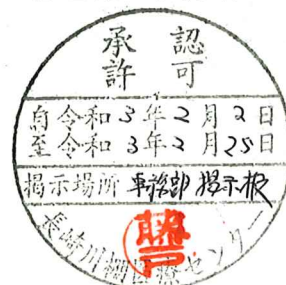 承認
許可
自令和3年2月2日
至令和3年2月25日
掲示場所 事務部 掲示板
長崎川棚医療センター